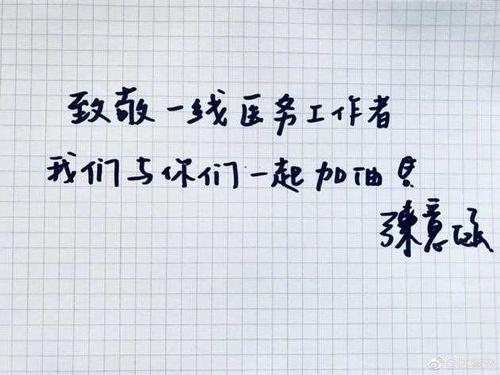 致敬一线医务工作者
我们与你们一起加油！
陈意涵